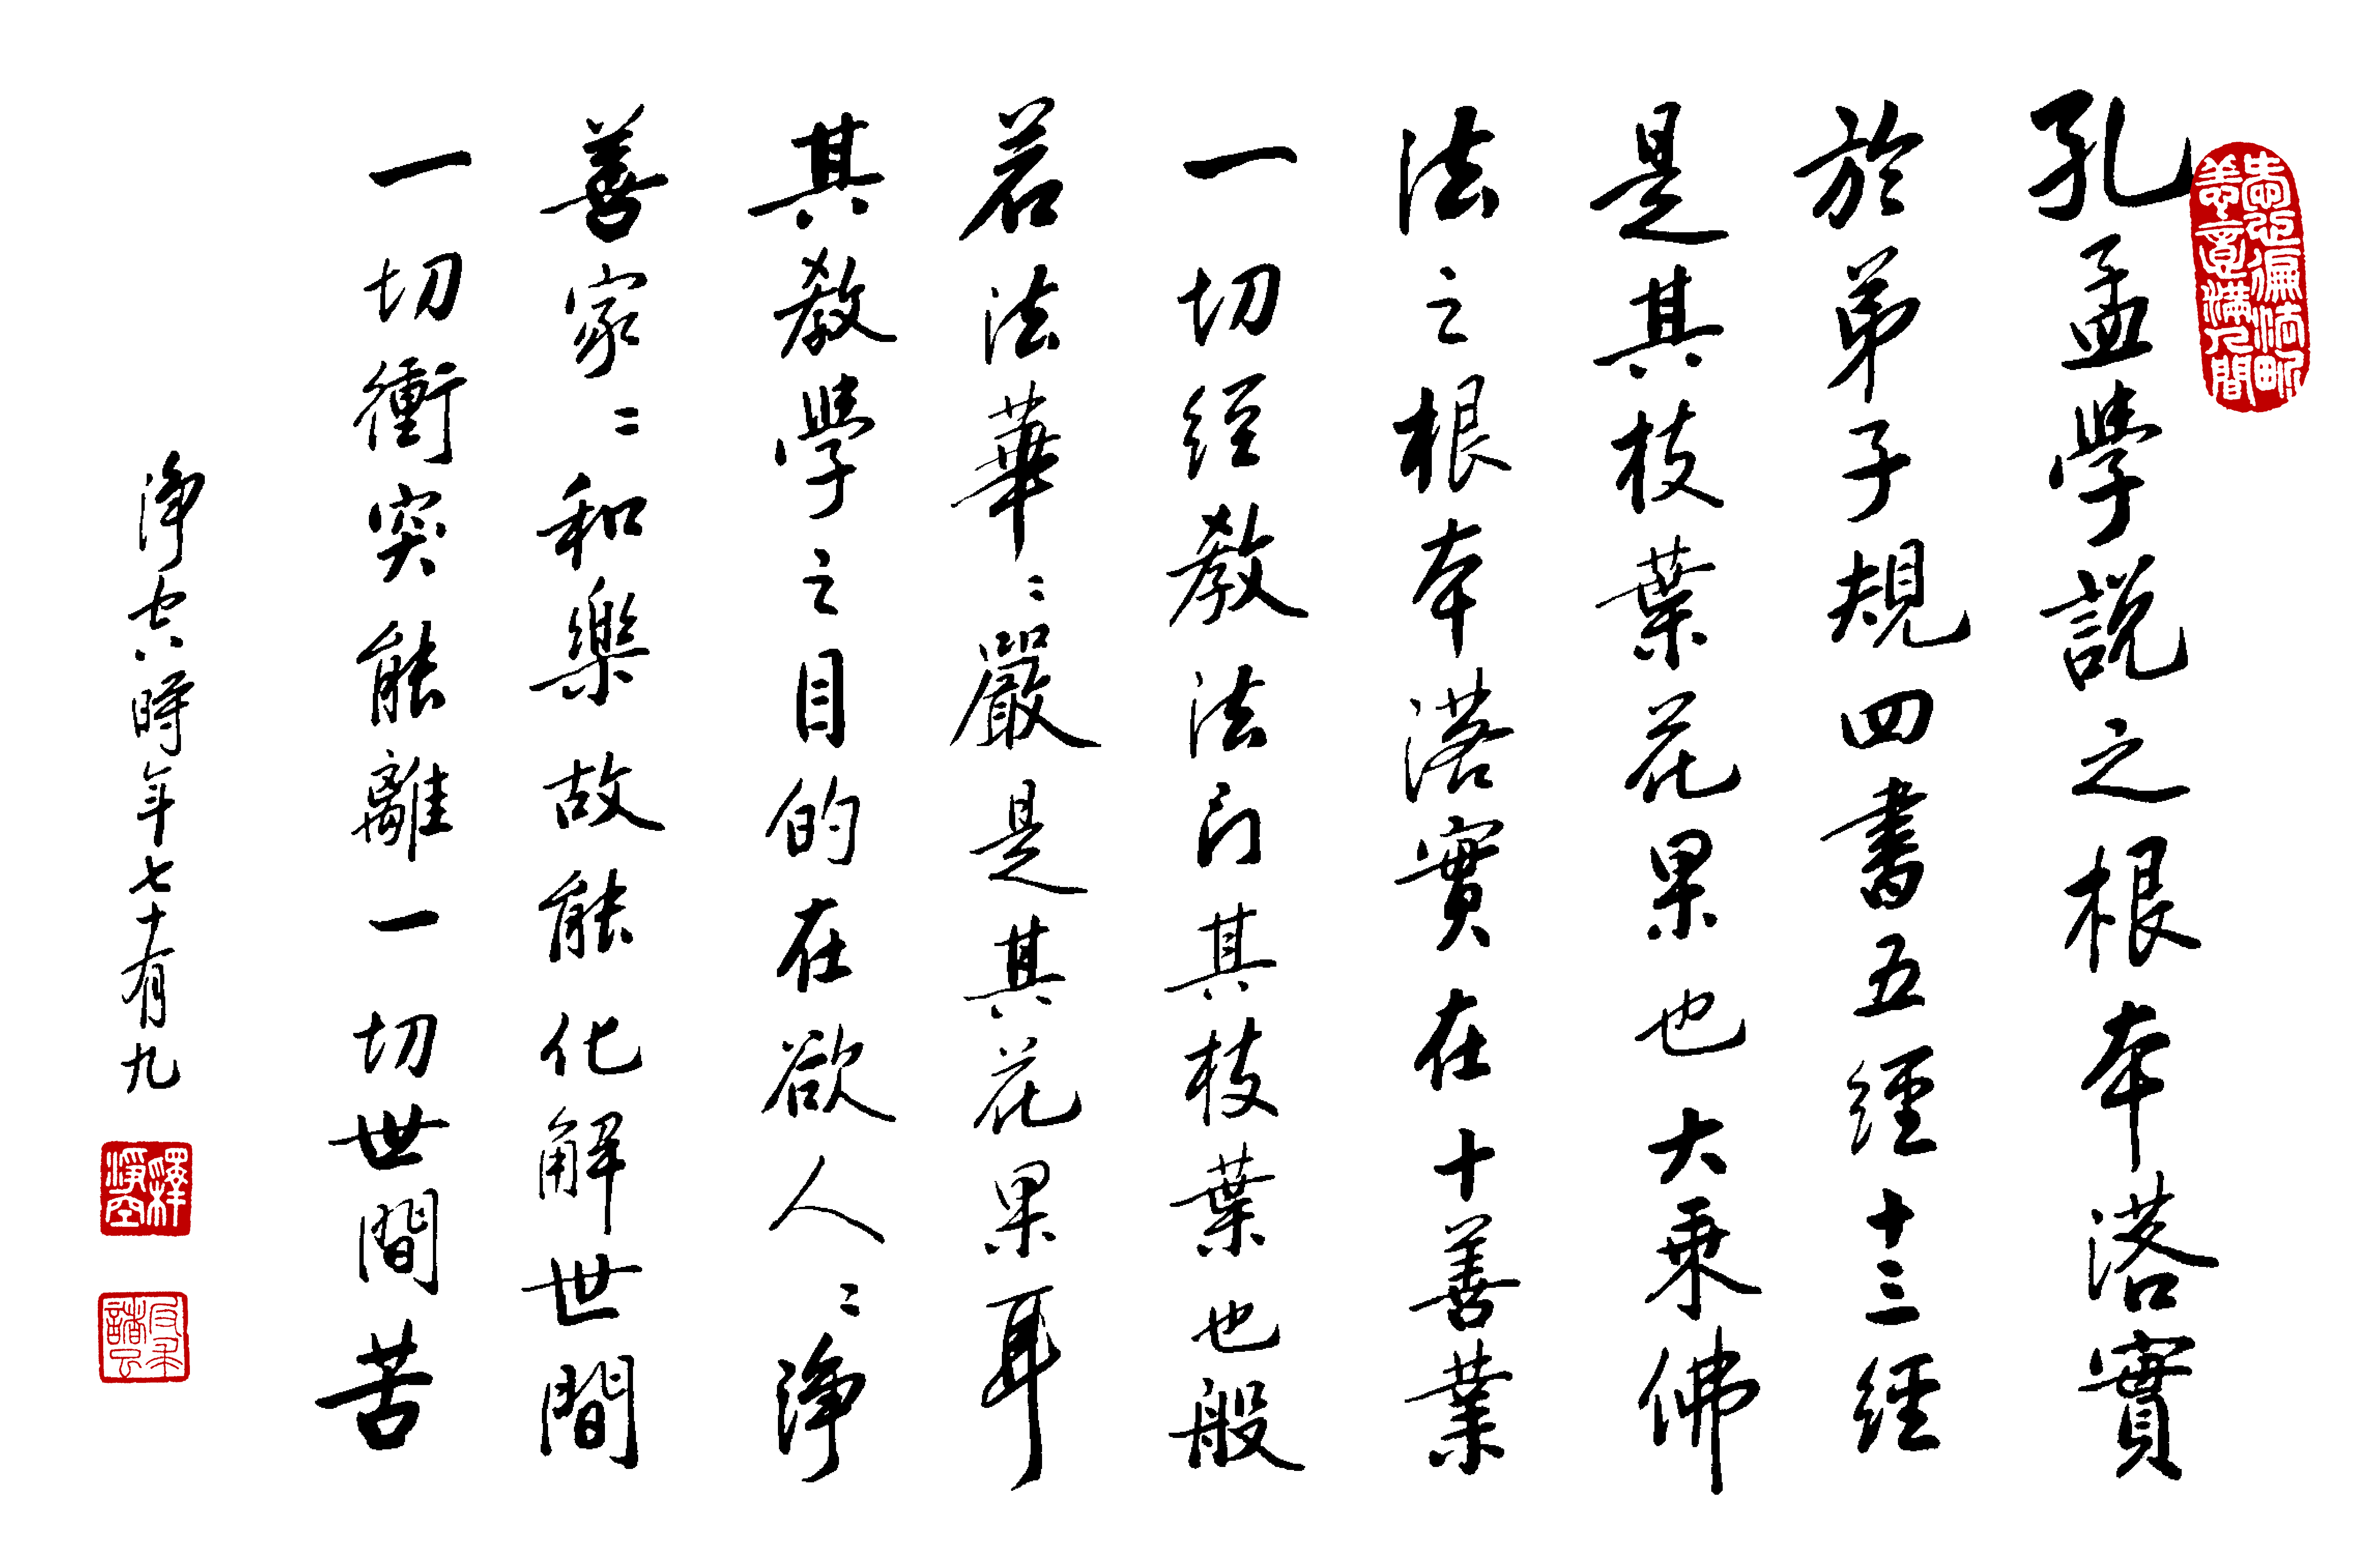 孔孟學說之根本落實
於弟子規四書五經十三經
是其枝葉花果也大乘佛
法之根本落實在十善業
一切經教法門其枝葉也般
若法華〻嚴是其花果耳
其教學之目的在欲人〻淨
善家〻和樂故能化解世間
一切衝突能離一切世間苦
淨空時年七十有九
釋淨空